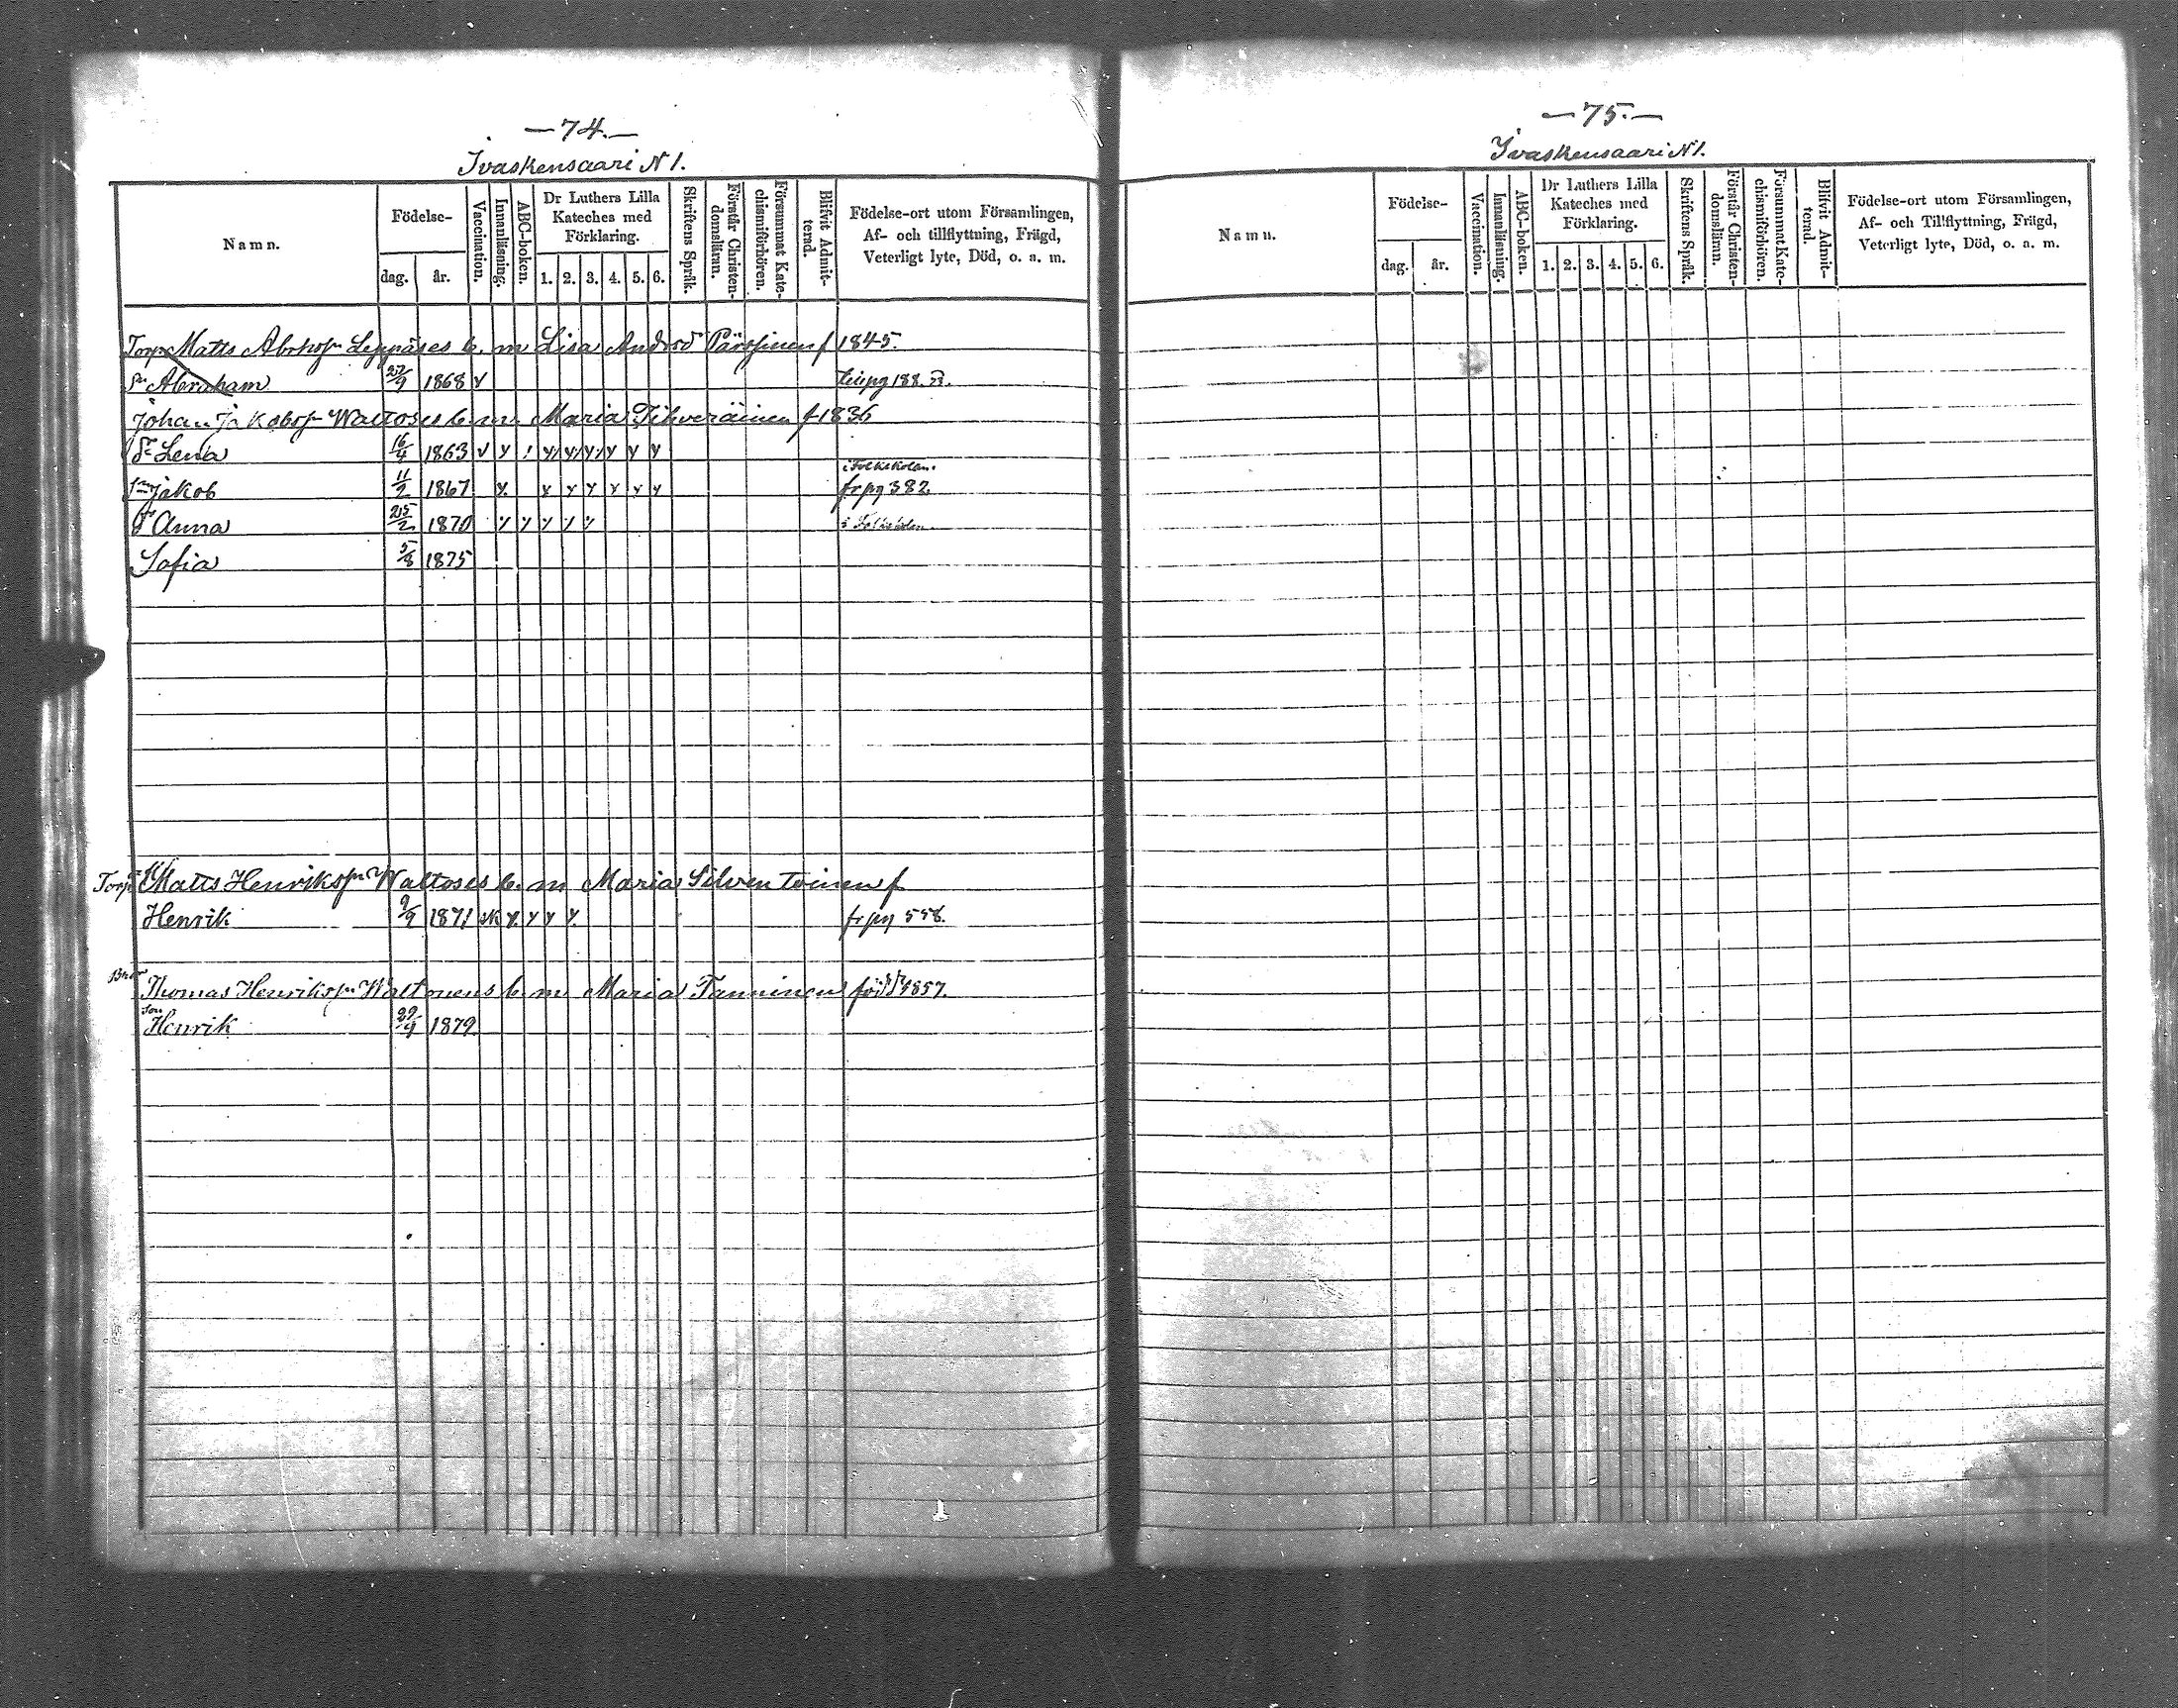 —74.—
Ivaskensaari N 1.
Namn.
Födelse-
dag.
år.
Vaccination.
Innanläsning.
ABC-boken.
Dr Luthers Lilla
Kateches med
Förklaring.
1. 2. 3. 4. 5. 6.
Skriftens Språk.
Förstår Christen-
domsläran.
Försummat Kate-
chismiförhören.
Blifvit Admit-
terad.
Födelse-ort utom Församlingen,
Af- och tillflyttning, Frägd,
Veterligt lyte, Död, o. a. m.
Torp. Matts Abrhsn Leppäses b. m Lisa Andrsd Pärssinen f 1845.
Sn Abraham 1868 v pg 188.
Johan Jakobsn Waltoses b. m. Maria Tihveräinen f 1836
Dr Lena 16/4 1863
i Folkskolan.
Sn Jakob 11/2 1867 fr pg 382.
Dr Anna 25/2 1870 i Folkskolan
Sofia 5/8 1875
Torp Matts Henriksn Waltoses b. m Maria Silventoinen f
Henrik 9/9 1871 fr pg 558.
Thomas Henriksn Waltonens b. m Maria Tanninen född 1857.
Son
Henrik 29/9 1879.
—75.—
Ivaskensaari N 1.
Namn.
Födelse-
dag.
år.
Vaccination.
Innanläsning.
ABC-boken.
Dr Luthers Lilla
Kateches med
Förklaring.
1. 2. 3. 4. 5. 6.
Skriftens Språk.
Förstår Christen-
domsläran.
Försummat Kate-
chismiförhören.
Blifvit Admit-
terad.
Födelse-ort utom Församlingen,
Af- och Tillflyttning, Frägd,
Veterligt lyte, Död, o. a. m.